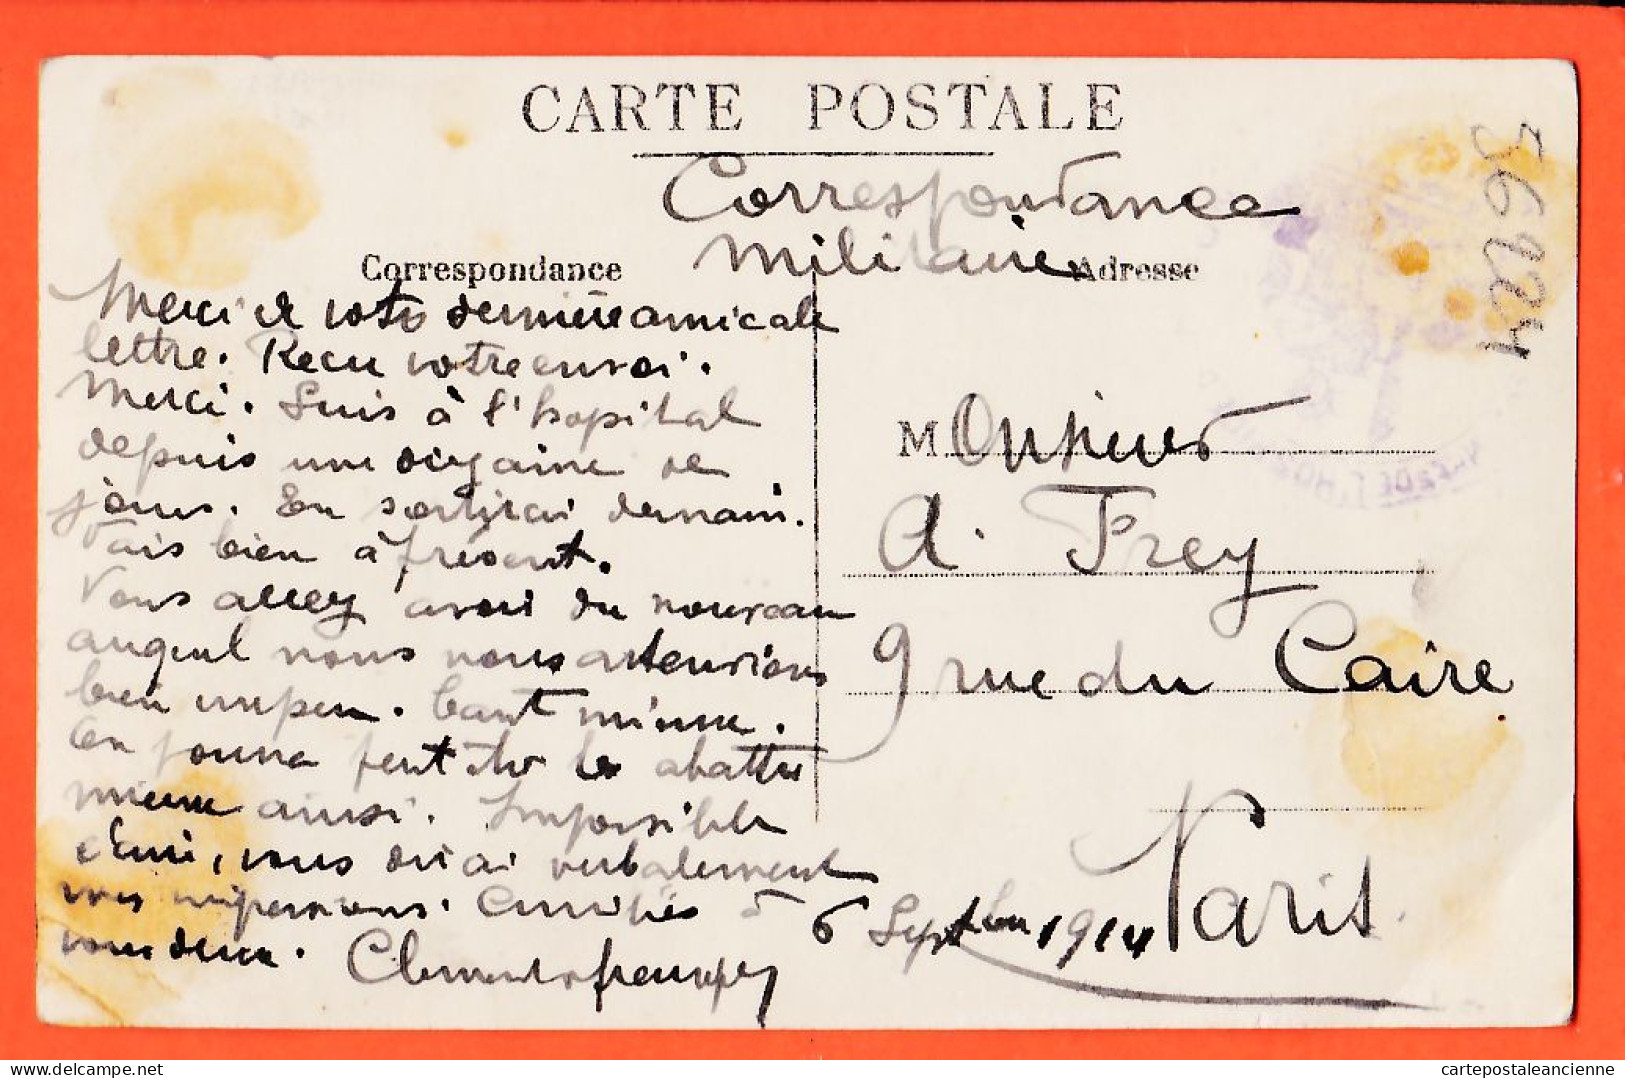 CARTE POSTALE
Correspondance
Militaire
Correspondance
Adresse
Merci de votre dernière amicale
lettre. Recu votre envoi.
Merci. Suis à l'hopital
depuis une dizaine de
jours. En sortirai demain.
Vais bien à présent.
Vous allez avoir du nouveau
nous nous attendrions
bien un peu. tant mieux.
on pourra peut etre les abattre
mieux ainsi. Impossible
d'ecrire, vous dirai verbalement
mes impressions. Amitiés à
vous deux.
6 Septbre 1914
Monsieur
A. Frey
9 rue du Caire
Paris.
36924
DE L'HOS
delcampe.net
cartepostaleancienne